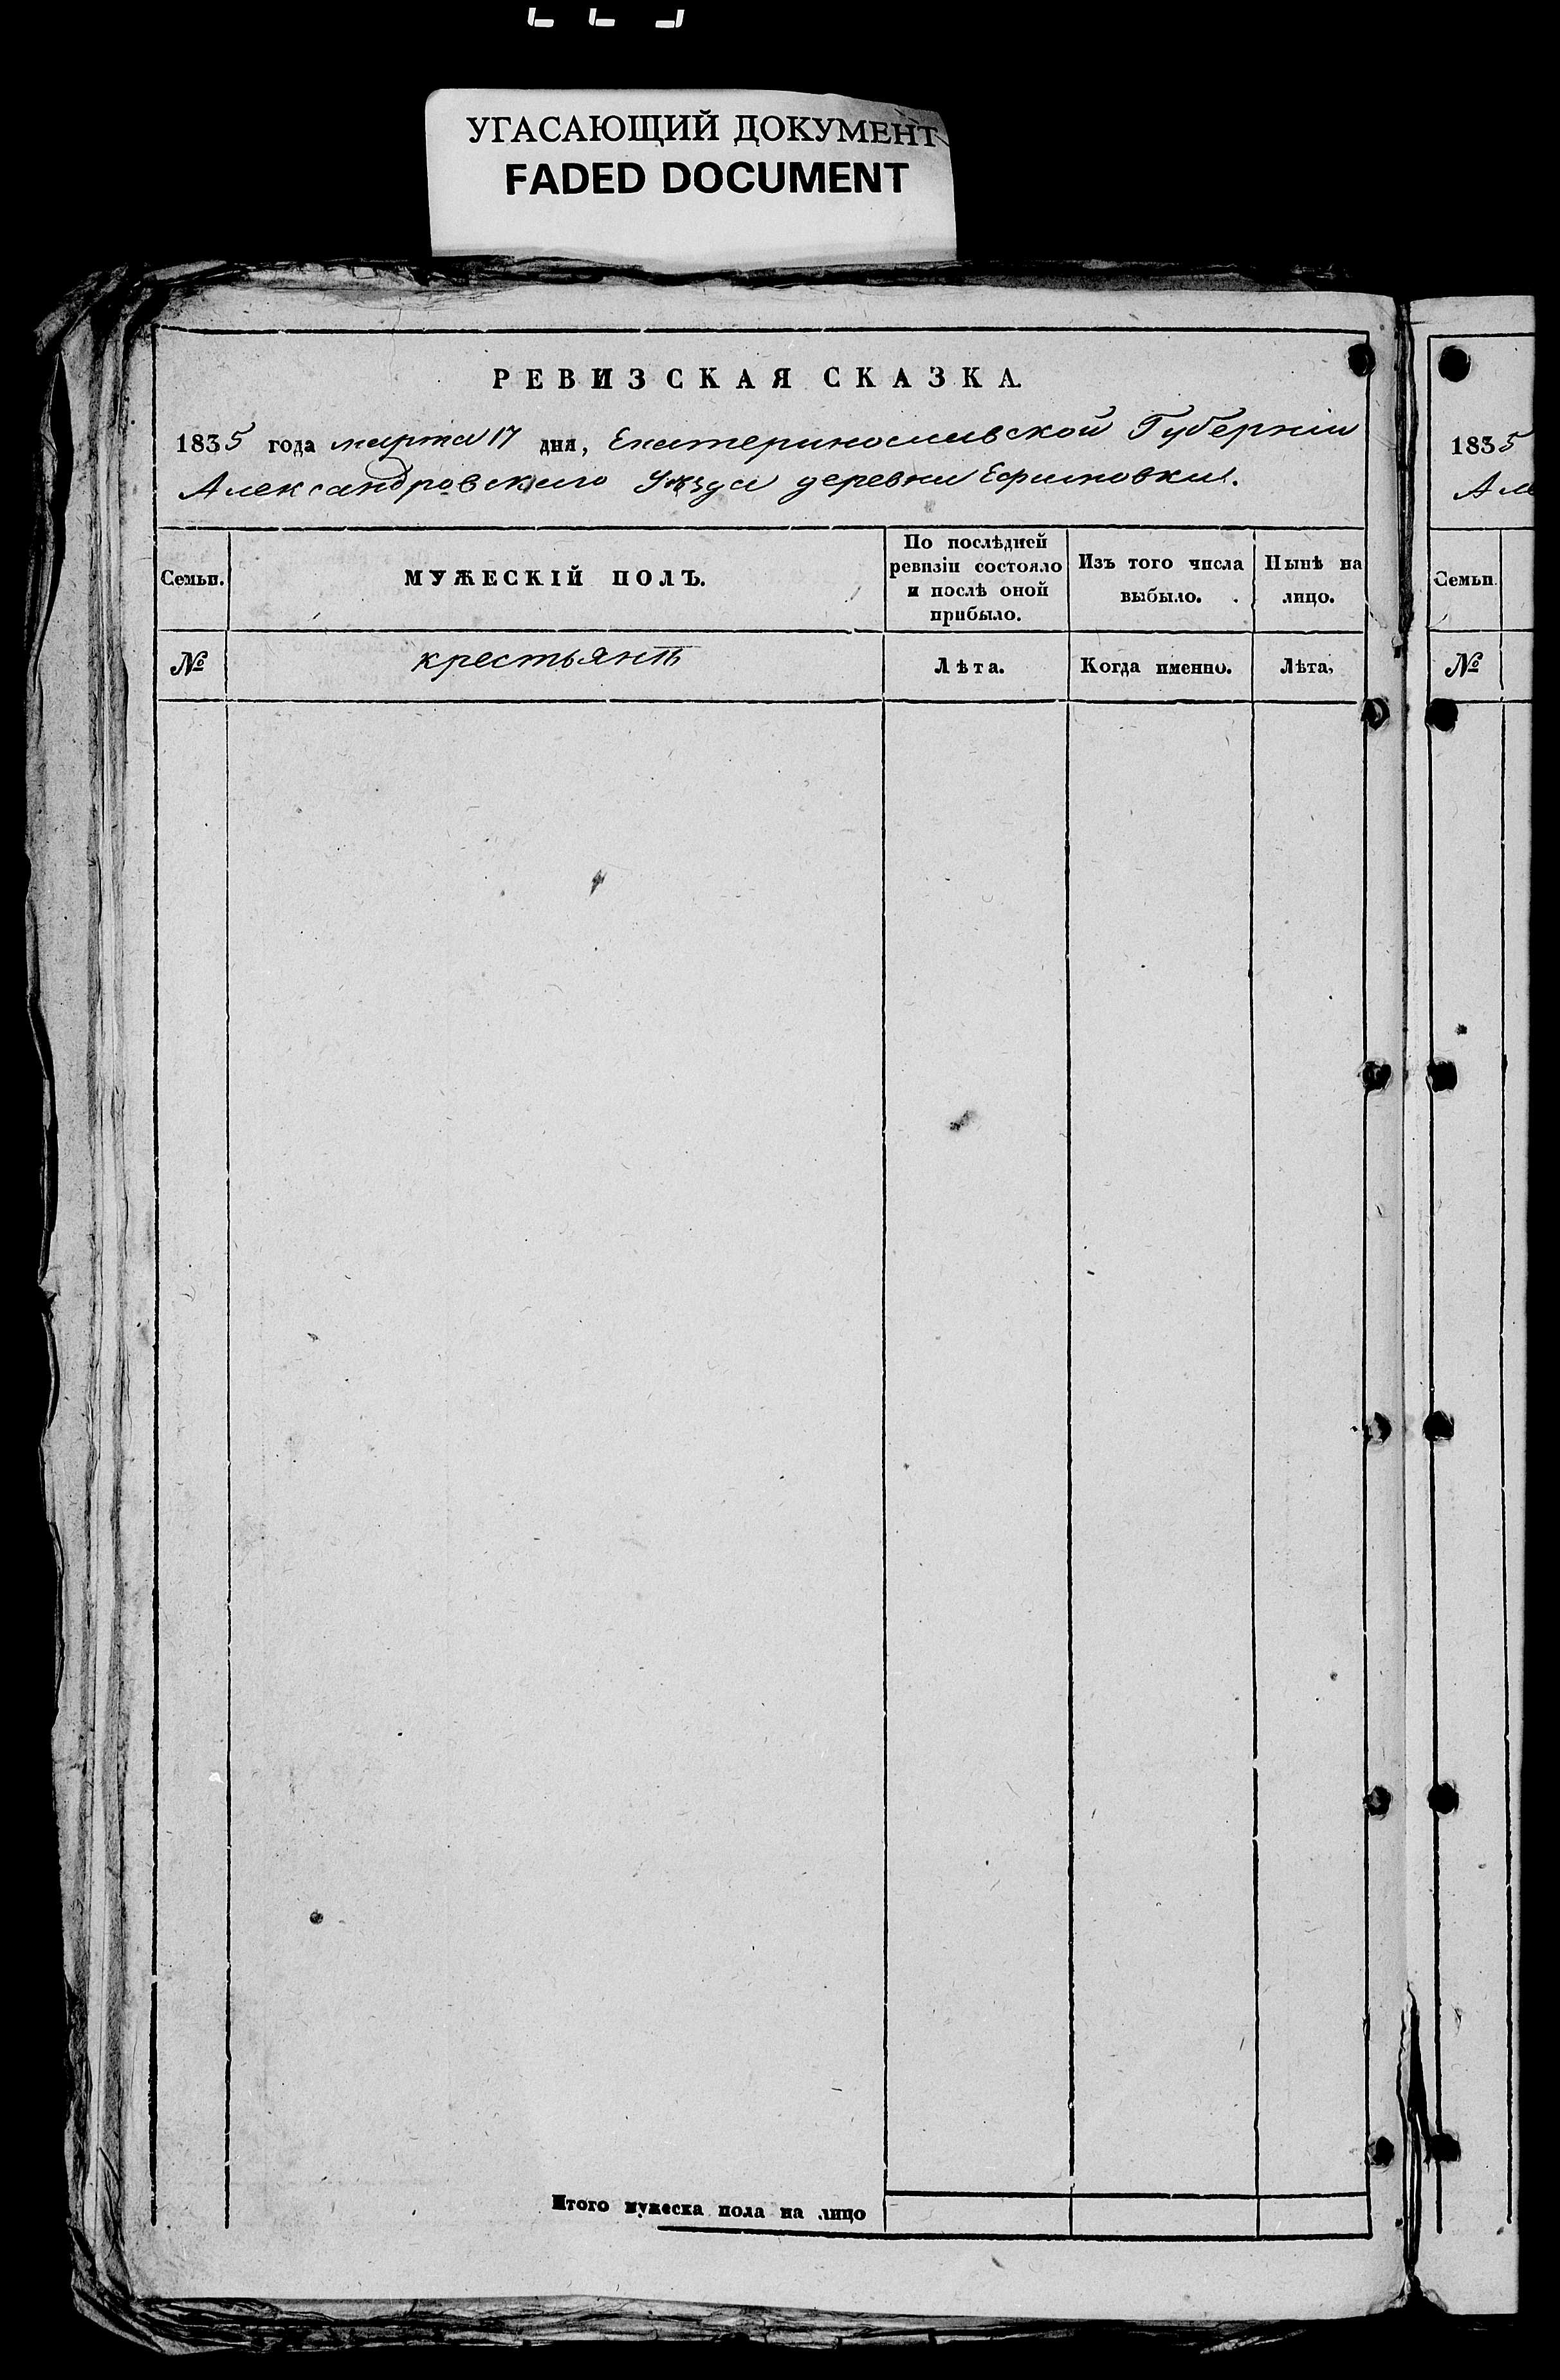 УГАСАЮЩИЙ ДОКУМЕНТ
FADED DOCUMENT
РЕВИЗСКАЯ СКАЗКА.
1835 года марта 17 дня, Екатеринославской Губернии
Александровского Уѣзда деревни Ефимовки.
Семьи.
МУЖЕСКІЙ ПОЛЪ.
По послѣдней
ревизіи состояло
и послѣ оной
прибыло.
Изъ того числа
выбыло.
Нынѣ на
лицо.
№
крестьянъ
Лѣта.
Когда именно.
Лѣта,
Итого мужеска пола на лицо
1835
Але
Семьи
№